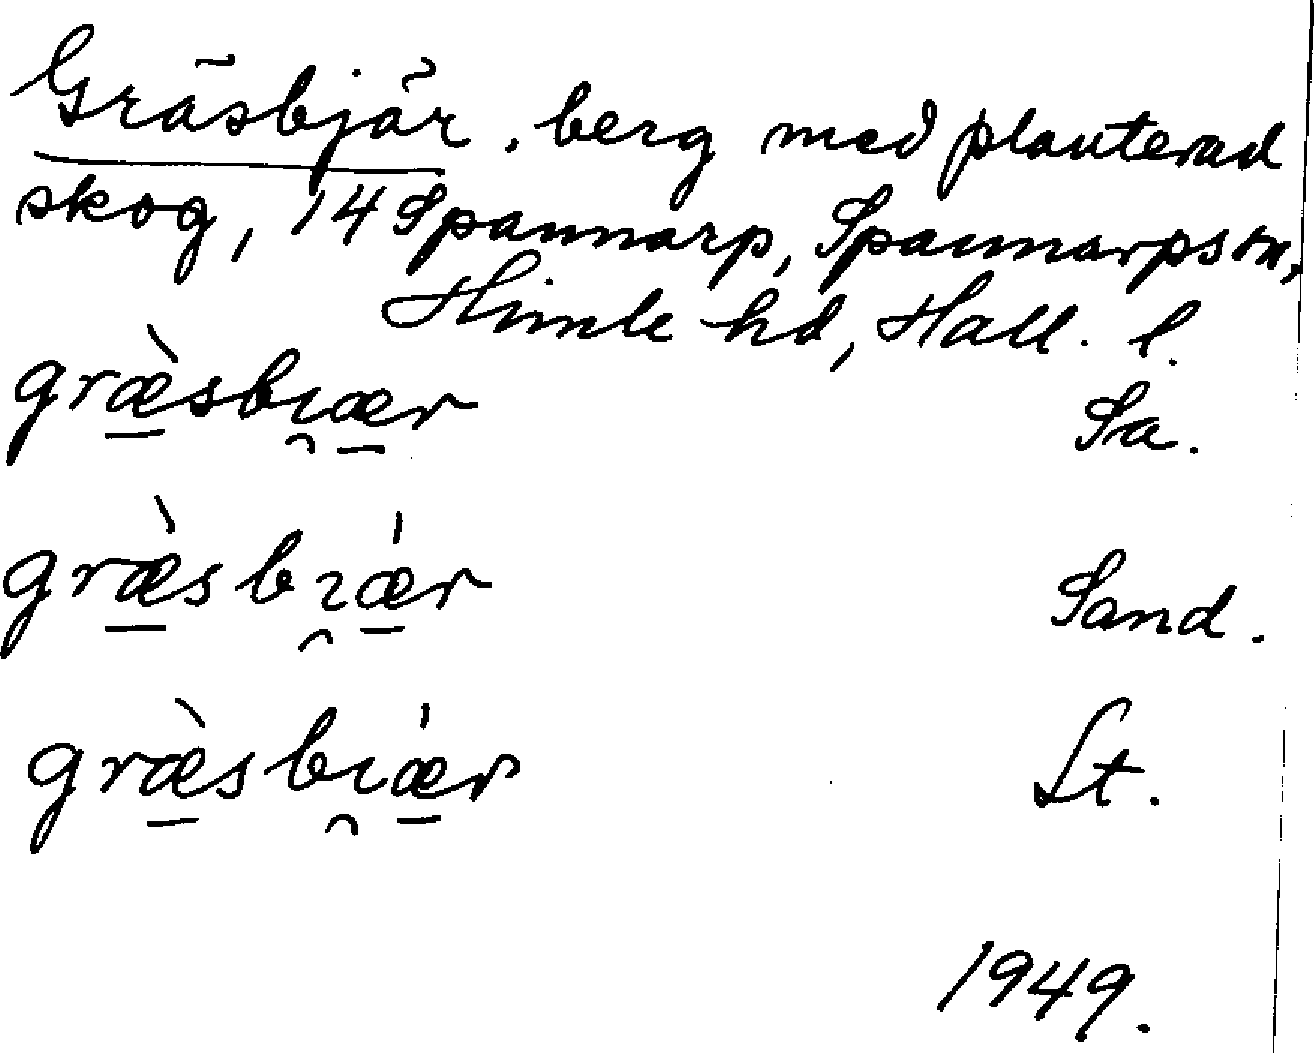 Gräsbjär, berg med planterad
skog, 14 Spannarp, Spannarps sn,
Himle hd, Hall. l.
græ̱̀sbi̯æ̱r Sa.
græ̱̀sbi̯ǽ̱r Sand.
græ̱̀sbi̯ǽ̱r St.
1949.